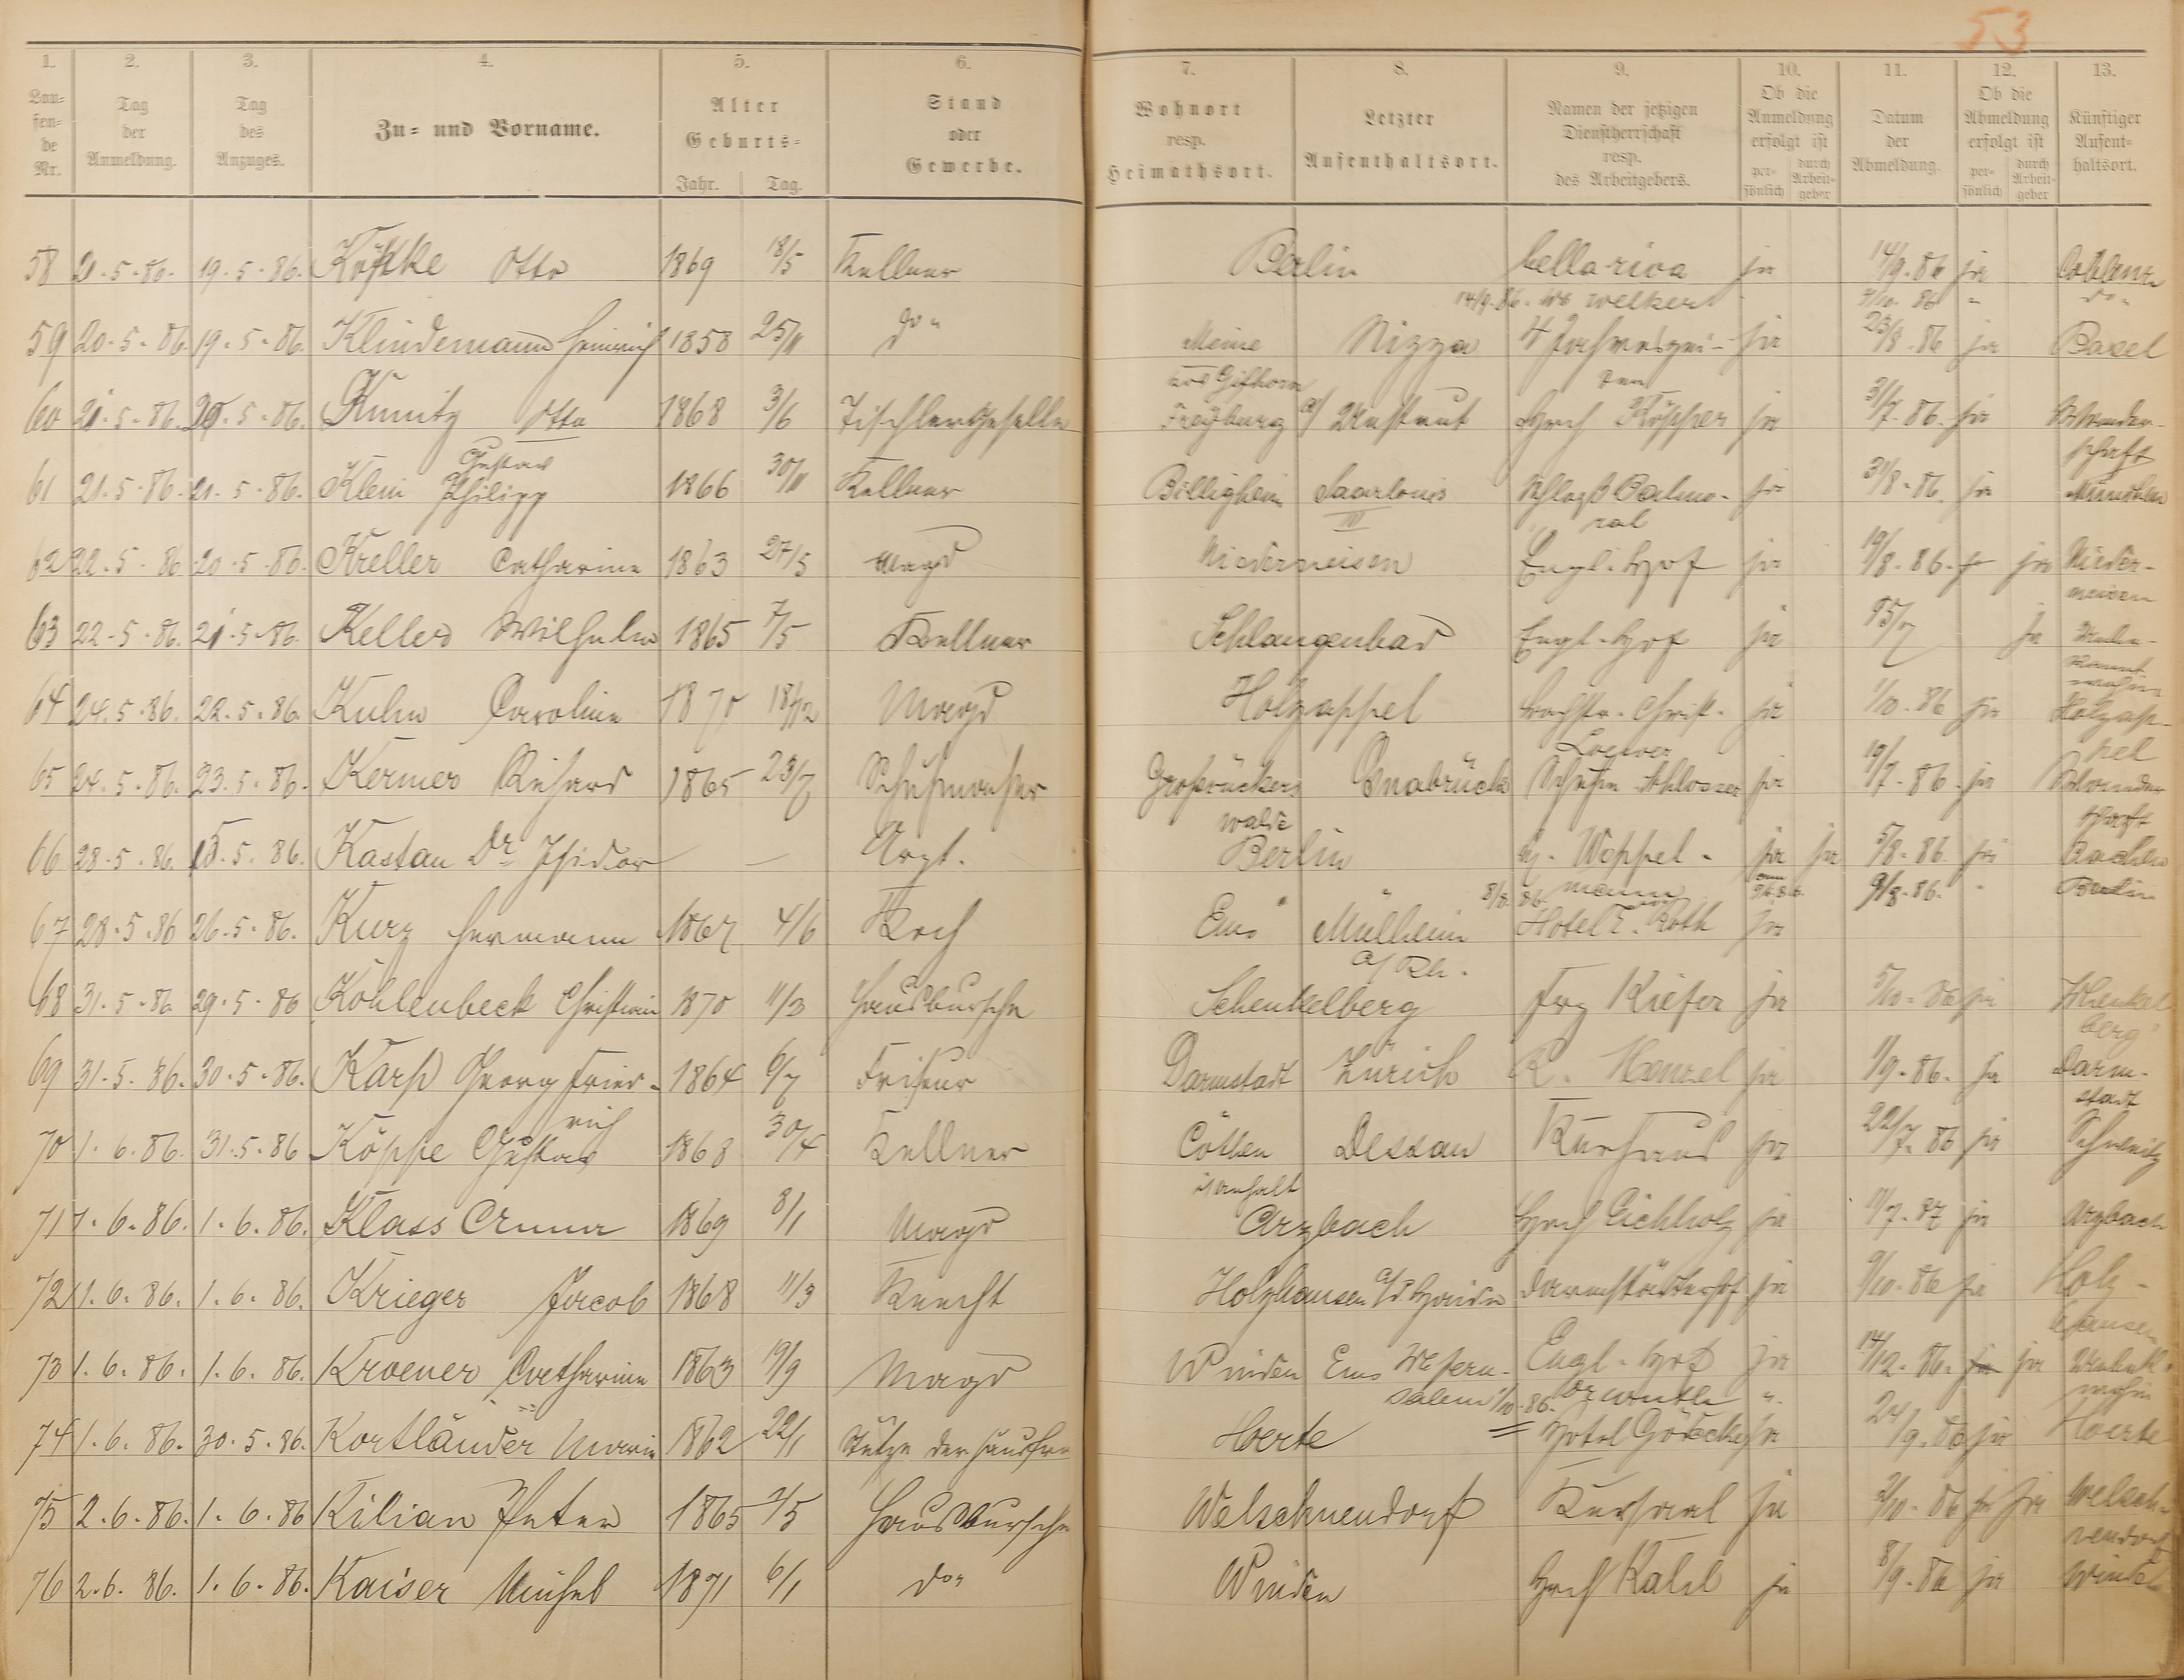 53
1. 2. 3. 4. 5. 6. 7. 8. 9. 10. 11. 12. 13.
Lau=fen=de Nr. Tag der Anmeldung. Tag des Anzuges. Zu= und Vorname. Alter Geburts= Jahr. Tag. Stand oder Gewerbe. Wohnort resp. Heimathsort. Letzter Aufenthaltsort. Namen der jetzigen Dienstherrschaft resp. des Arbeitgebers. Ob die Anmeldung erfolgt ist per=sönlich durch Arbeit=geber Datum der Abmeldung. Ob die Abmeldung erfolgt ist per=sönlich durch Arbeit=geber Künftiger Aufent=haltsort.
58 19.5.86. Otto 1869 18/5 Kellner Berlin bella riva ja 14/9.86 ja Coblenz
14/9.86. Welker 86 " do "
59 20.5.86. 19.5.86. Klindemann Heinrich 1858 25/11 do " Meine Nizza 4 Jahreszei- ja 23/8.86 ja Basel
Gifhorn ten
60 21.5.86. 20.5.86. Kunitz Otto 1868 3/6 Tischlergeselle Freyburg a/ Unstrut Hch Küpper ja 3/7.86. ja Wander-
Gustav schaft
61 21.5.86. 21.5.86. Klein Philipp 1866 30/11 Kellner Billigheim Saarlouis Schloß Balmo- ja 31/8.86. ja München
IV ral
62 22.5.86 20.5.86. Kreller Catharine 1863 27/5 Magd Niederneisen Engl. Hof ja 19/8.86. ja Nieder-
neisen
63 22.5.86. 21.5.86. Keller Wilhelm 1865 7/5 Kellner Schlangenbad Engl. Hof ja ja
64 24.5.86. 22.5.86. Kuhn Caroline 1870 18/12 Magd Holzappel Christ. ja 1/10.86 ja Holzap-
Loewer pel
65 24.5.86. 23.5.86. Kermer Richard 1865 23/7 Schuhmacher Großrückers Osnabrück Schuhm. Schlosser ja 19/7.86. ja Wander
walde schaft
66 28.5.86. 15.5.86. Kastan Dr Isidor — — Arzt. Berlin Weppel- ja ja 5/8.86. ja Aachen
8/8.86. mann 9/8.86. " Berlin
67 28.5.86 26.5.86. Kurz Hermann 1867 4/6 Koch Ems Mülheim Hotel z. Roth ja
a/Rh.
68 31.5.86 29.5.86 Kohlenbeck Christian 1870 11/3 Hausbursche Schenkelberg Frz Kiefer ja 5/10.86 ja Schenkel
berg
69 31.5.86. 30.5.86. Karp Georg Fried- 1864 6/7 Friseur Darmstadt Zürich R. Menzel ja 1/9.86. ja Darm-
rich stadt
70 1.6.86. 31.5.86 Köppe Gustav 1868 30/4 Kellner Cöthen Dessau Kurhaus ja 22/7.86 ja
i/Anhalt
71 1.6.86. 1.6.86. Klass Anna 1869 8/1 Magd Arzbach Hch Eichholz ja 11/7.87 ja Arzbach
72 1.6.86. 1.6.86. Krieger Jacob 1868 11/3 Knecht Holzhausen a/d Haide Darmstädterhof ja 9/10.86 ja Holz-
hausen
73 1.6.86. 1.6.86. Kroener Catharine 1863 19/9 Magd Winden Ems Engl. Hof ja 14/12.86. ja ja
1/10.86. "
74 1.6.86. 30.5.86. Kortländer Maria 1862 22/1 Stütze der Hausfrau Herte Hotel Göbecke ja 24/9.86 ja Herte
75 2.6.86. 1.6.86 Kilian Peter 1865 2/5 Hausbursche Welschneudorf Kursaal ja 2/10.86 ja ja Welsch-
neudorf
76 2.6.86. 1.6.86. Kaiser Michel 1871 6/1 do " Winden Hch Kalil ja 8/9.86 ja Winden